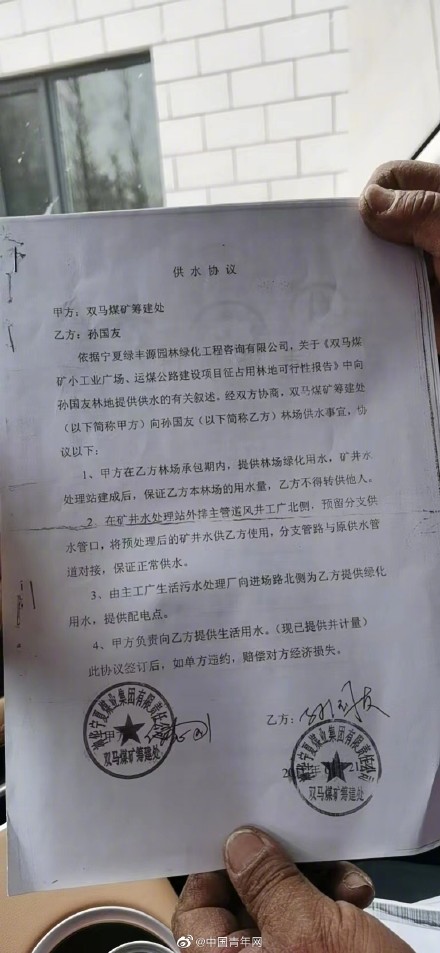 供水协议
甲方：双马煤矿筹建处
乙方：孙国友
依据宁夏绿丰源园林绿化工程咨询有限公司，关于《双马煤
矿小工业广场、运煤公路建设项目征占用林地可行性报告》中向
孙国友林地提供供水的有关叙述。经双方协商，双马煤矿筹建处
（以下简称甲方）向孙国友（以下简称乙方）林场供水事宜，协
议以下：
1、甲方在乙方林场承包期内，提供林场绿化用水，矿井水
处理站建成后，保证乙方本林场的用水量，乙方不得转供他人。
2、在矿井水处理站外排主管道风井工广北侧，预留分支供
水管口，将预处理后的矿井水供乙方使用，分支管路与原供水管
道对接，保证正常供水。
3、由主工广生活污水处理厂向进场路北侧为乙方提供绿化
用水，提供配电点。
4、甲方负责向乙方提供生活用水。（现已提供并计量）
此协议签订后，如单方违约，赔偿对方经济损失。
甲
乙方：孙国友
宁夏煤业集团有限责任公司
双马煤矿筹建处
宁夏煤业集团有限责任公司
双马煤矿筹建处
@中国青年网